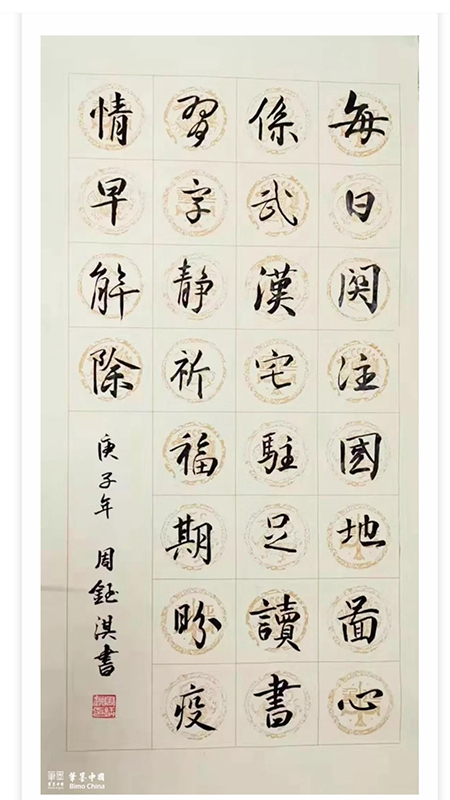 每日関注國地啚心
係武漢宅駐足讀書
習字静祈福期盼疫
情早解除
庚子年 周鈺淇書
筆墨中國
Bimo China